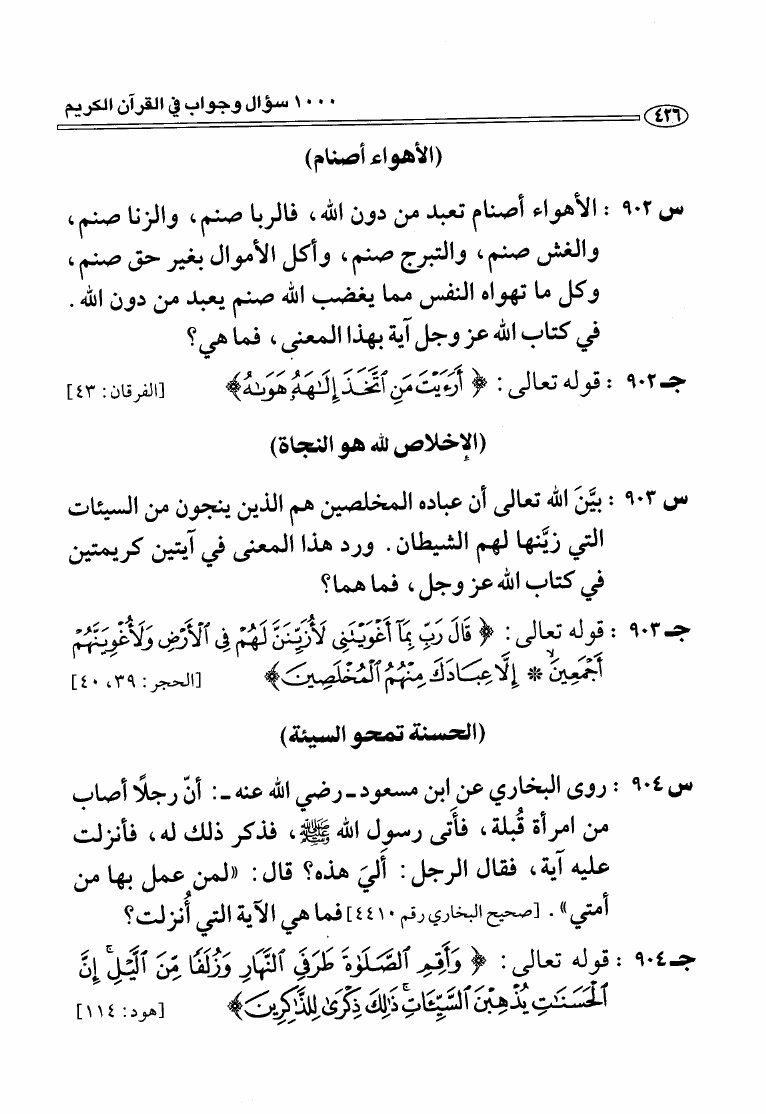 ١٠٠٠ سؤال وجواب في القرآن الكريم
٤٢٦
(الأهواء أصنام)
س ٩٠٢ : الأهواء أصنام تعبد من دون الله، فالربا صنم، والزنا صنم،
والغش صنم، والتبرج صنم، وأكل الأموال بغير حق صنم،
وكل ما تهواه النفس مما يغضب الله صنم يعبد من دون الله.
في كتاب الله عز وجل آية بهذا المعنى، فما هي؟
جـ ٩٠٢ : قوله تعالى: ﴿ أَرَءَيْتَ مَنِ ٱتَّخَذَ إِلَٰهَهُۥ هَوَىٰهُ ﴾ [الفرقان: ٤٣]
(الإخلاص لله هو النجاة)
س ٩٠٣ : بيَّنَ الله تعالى أن عباده المخلصين هم الذين ينجون من السيئات
التي زيَّنها لهم الشيطان. ورد هذا المعنى في آيتين كريمتين
في كتاب الله عز وجل، فما هما؟
جـ ٩٠٣ : قوله تعالى: ﴿ قَالَ رَبِّ بِمَآ أَغْوَيْتَنِى لَأُزَيِّنَنَّ لَهُمْ فِى ٱلْأَرْضِ وَلَأُغْوِيَنَّهُمْ
أَجْمَعِينَ * إِلَّا عِبَادَكَ مِنْهُمُ ٱلْمُخْلَصِينَ ﴾ [الحجر: ٣٩، ٤٠]
(الحسنة تمحو السيئة)
س ٩٠٤ : روى البخاري عن ابن مسعود - رضي الله عنه -: أنّ رجلًا أصاب
من امرأة قُبلة، فأَتى رسول الله ﷺ، فذكر ذلك له، فأنزلت
عليه آية، فقال الرجل: أَليَ هذه؟ قال: «لمن عمل بها من
أمتي». [صحيح البخاري رقم ٤٤١٠] فما هي الآية التي أُنزلت؟
جـ ٩٠٤ : قوله تعالى: ﴿ وَأَقِمِ ٱلصَّلَوٰةَ طَرَفَىِ ٱلنَّهَارِ وَزُلَفًا مِّنَ ٱلَّيْلِ ۚ إِنَّ
ٱلْحَسَنَٰتِ يُذْهِبْنَ ٱلسَّيِّـَٔاتِ ۚ ذَٰلِكَ ذِكْرَىٰ لِلذَّٰكِرِينَ ﴾ [هود: ١١٤]